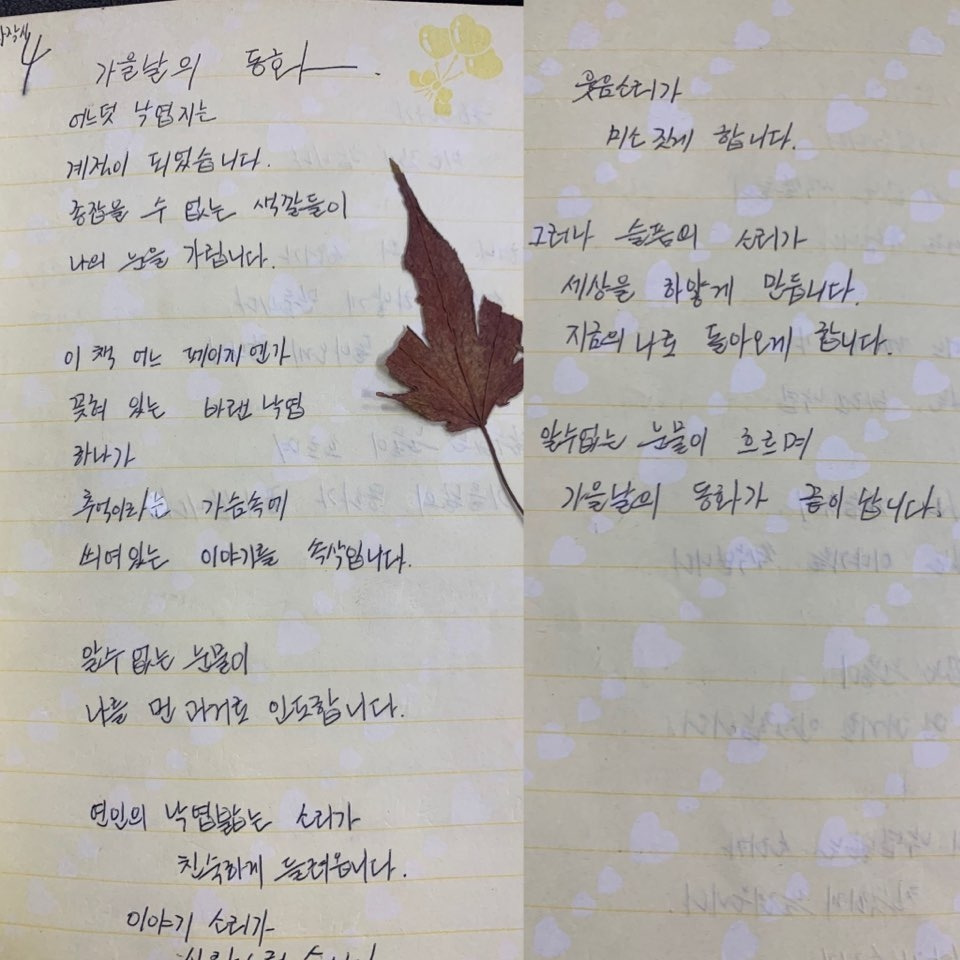 자작시
4
가을날의 동화
어느덧 낙엽지는
계절이 되었습니다.
종잡을 수 없는 색깔들이
나의 눈을 가립니다.
이 책 어느 페이지엔가
꽂혀 있는 바랜 낙엽
하나가
추억이라는 가슴속에
씌여있는 이야기를 속삭입니다.
알수 없는 눈물이
나를 먼 과거로 인도합니다.
연인의 낙엽밟는 소리가
친숙하게 들려옵니다.
이야기 소리가
웃음소리가
미소 짓게 합니다.
그러나 슬픔의 소리가
세상을 하얗게 만듭니다.
지금의 나로 돌아오게 합니다.
알수없는 눈물이 흐르며
가을날의 동화가 끝이 납니다.